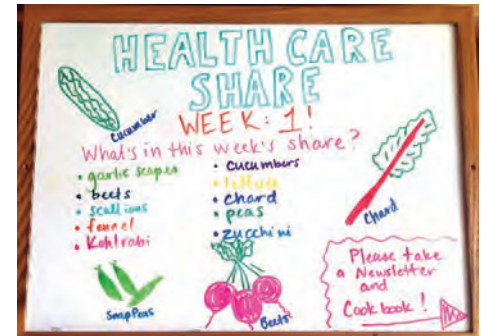 HEALTH CARE
SHARE
WEEK: 1!
Cucumber
What's in this week's share?
• garlic scapes
• beets
• scallions
• fennel
• Kohlrabi
• cucumbers
• lettuce
• chard
• peas
• zucchini
Chard
Snap Peas
Beets
Please take
a Newsletter
and
Cookbook!